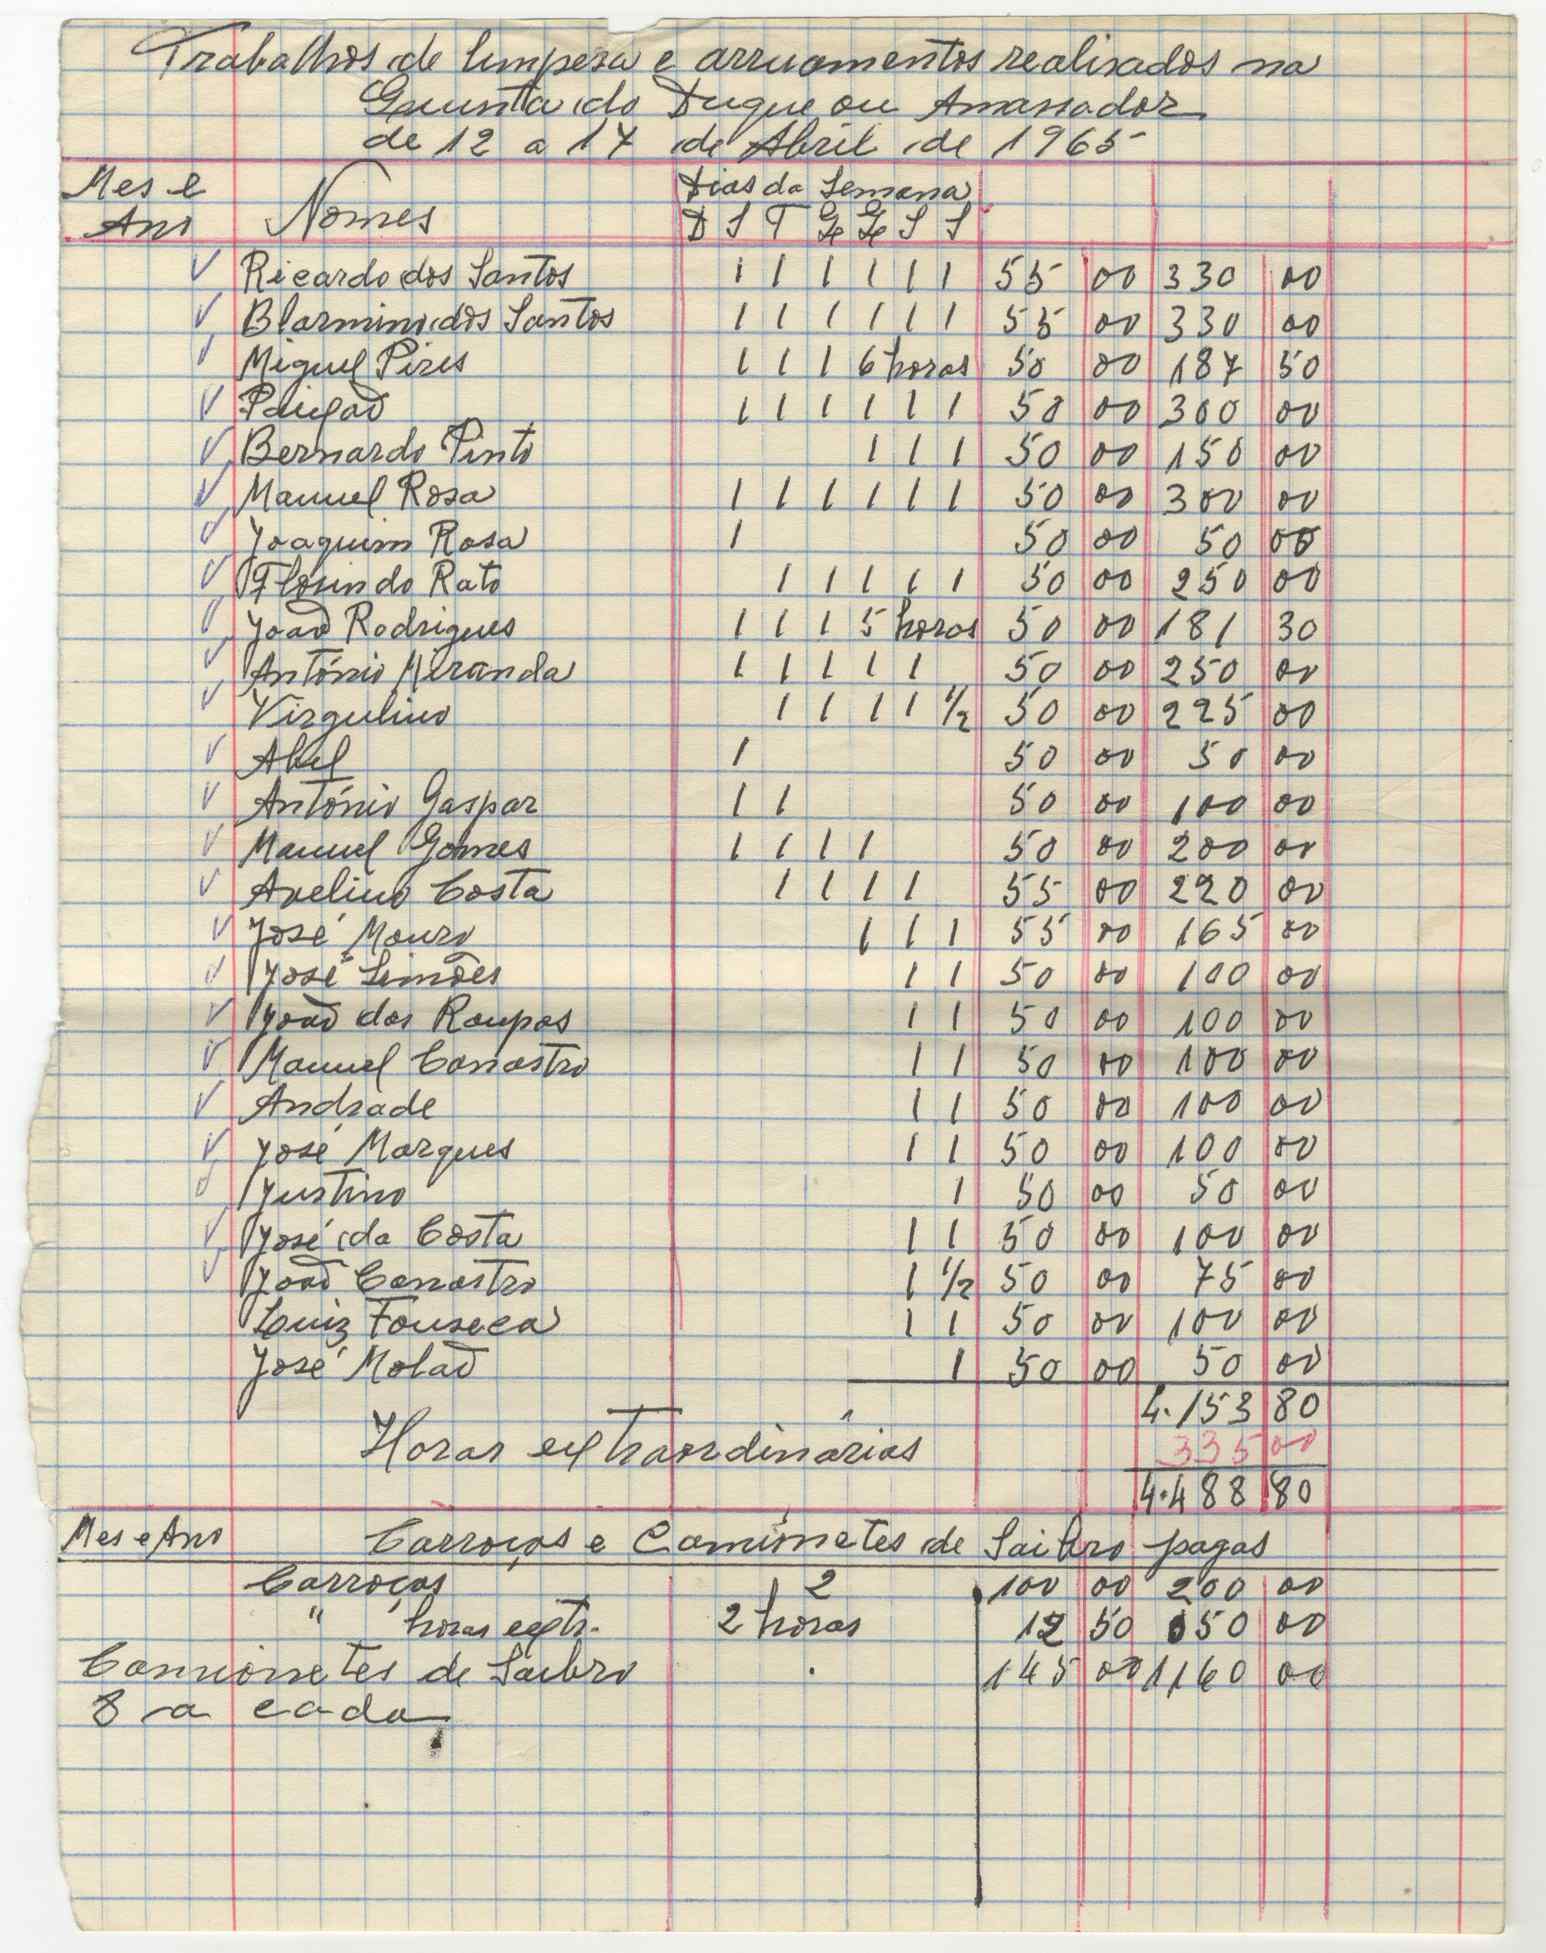 Trabalhos de limpesa e arruamentos realisados na
Quinta do Duque ou Amassador
de 12 a 17 de Abril de 1965
Mes e Ano Nomes Dias da Semana
D S T Q Q S S
√ Ricardo dos Santos 1 1 1 1 1 1 55 00 330 00
√ Blarmino dos Santos 1 1 1 1 1 1 55 00 330 00
√ Miguel Pires 1 1 1 6 horas 50 00 187 50
√ 1 1 1 1 1 1 50 00 300 00
√ Bernardo Pinto 1 1 1 50 00 150 00
√ Manuel Rosa 1 1 1 1 1 1 50 00 300 00
√ Joaquim Rosa 1 50 00 50 00
√ Florindo Rato 1 1 1 1 1 50 00 250 00
√ João Rodrigues 1 1 1 5 horas 50 00 181 30
√ António Miranda 1 1 1 1 1 50 00 250 00
√ Virgulino 1 1 1 1 1/2 50 00 225 00
√ Abel 1 50 00 50 00
√ António Gaspar 1 1 50 00 100 00
√ Manuel Gomes 1 1 1 1 50 00 200 00
√ Avelino Costa 1 1 1 1 55 00 220 00
√ José Mouro 1 1 1 55 00 165 00
√ José Simões 1 1 50 00 100 00
√ João das Roupas 1 1 50 00 100 00
√ Manuel Canastro 1 1 50 00 100 00
√ Andrade 1 1 50 00 100 00
√ José Marques 1 1 50 00 100 00
√ Justino 1 50 00 50 00
√ José da Costa 1 1 50 00 100 00
√ João Canastro 1 1/2 50 00 75 00
Luiz Fonseca 1 1 50 00 100 00
José Molão 1 50 00 50 00
4.153 80
Horas extraordinárias 335 00
4.488 80
Mes e Ano Carroças e Camionetes de Saibro pagas
Carroças 2 100 00 200 00
" horas extr. 2 horas 12 50 050 00
Camionetes de Saibro 145 00 1160 00
8 a cada